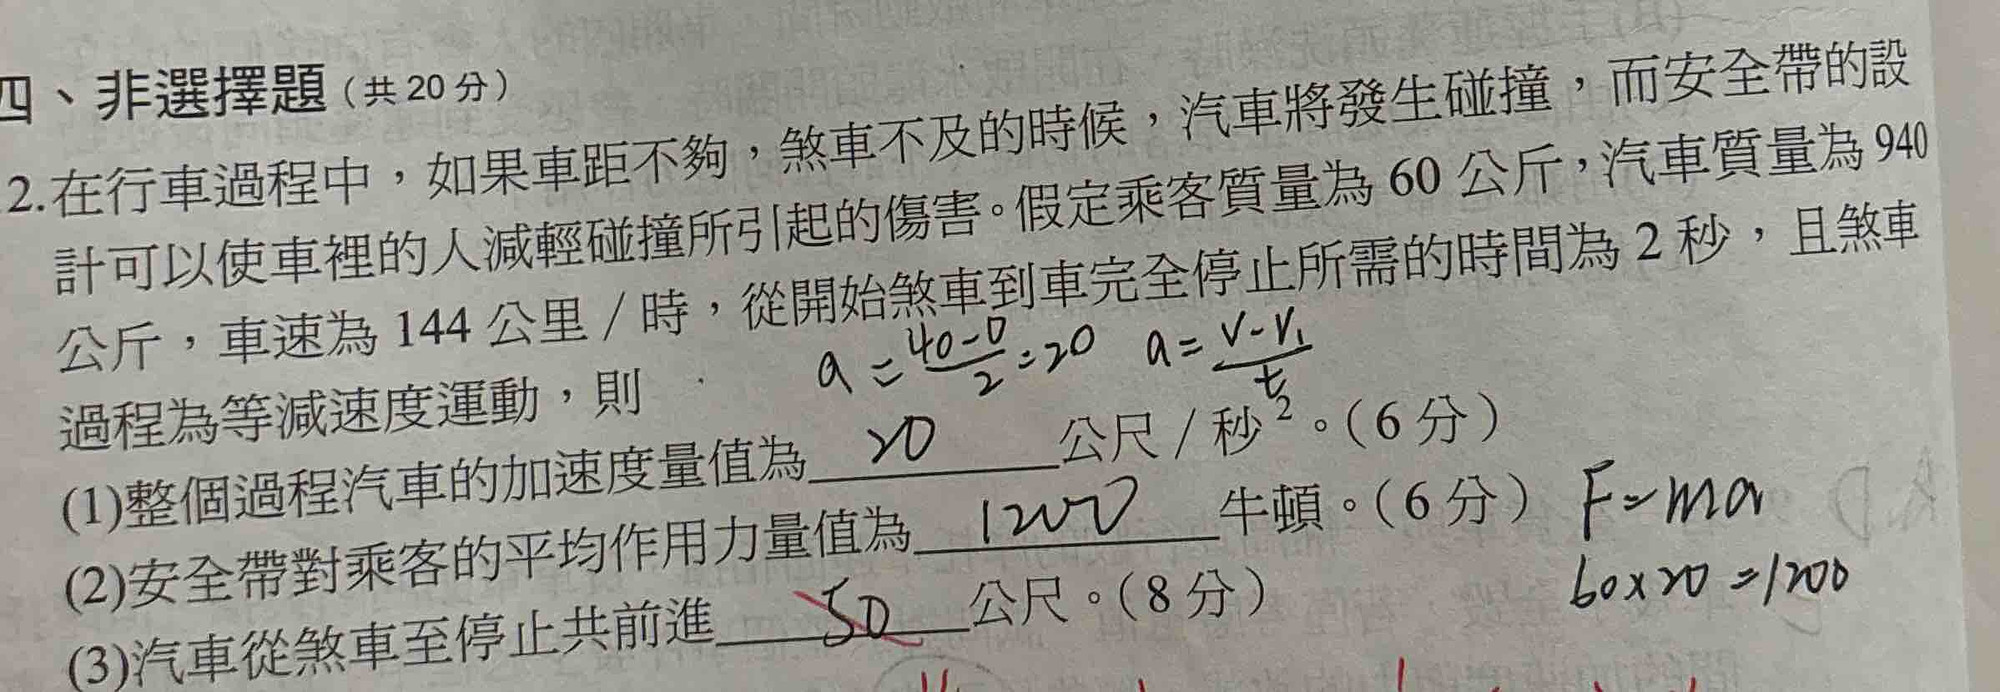 四、非選擇題（共20分）
2.在行車過程中，如果車距不夠，煞車不及的時候，汽車將發生碰撞，而安全帶的設
計可以使車裡的人減輕碰撞所引起的傷害。假定乘客質量為60公斤，汽車質量為940
公斤，車速為144公里／時，從開始煞車到車完全停止所需的時間為2秒，且煞車
過程為等減速度運動，則
a=40-0/2=20 a=V-V₁/t
(1)整個過程汽車的加速度量值為 20 公尺／秒²。（6分）
(2)安全帶對乘客的平均作用力量值為 1200 牛頓。（6分） F=ma
60×20=1200
(3)汽車從煞車至停止共前進 50 公尺。（8分）